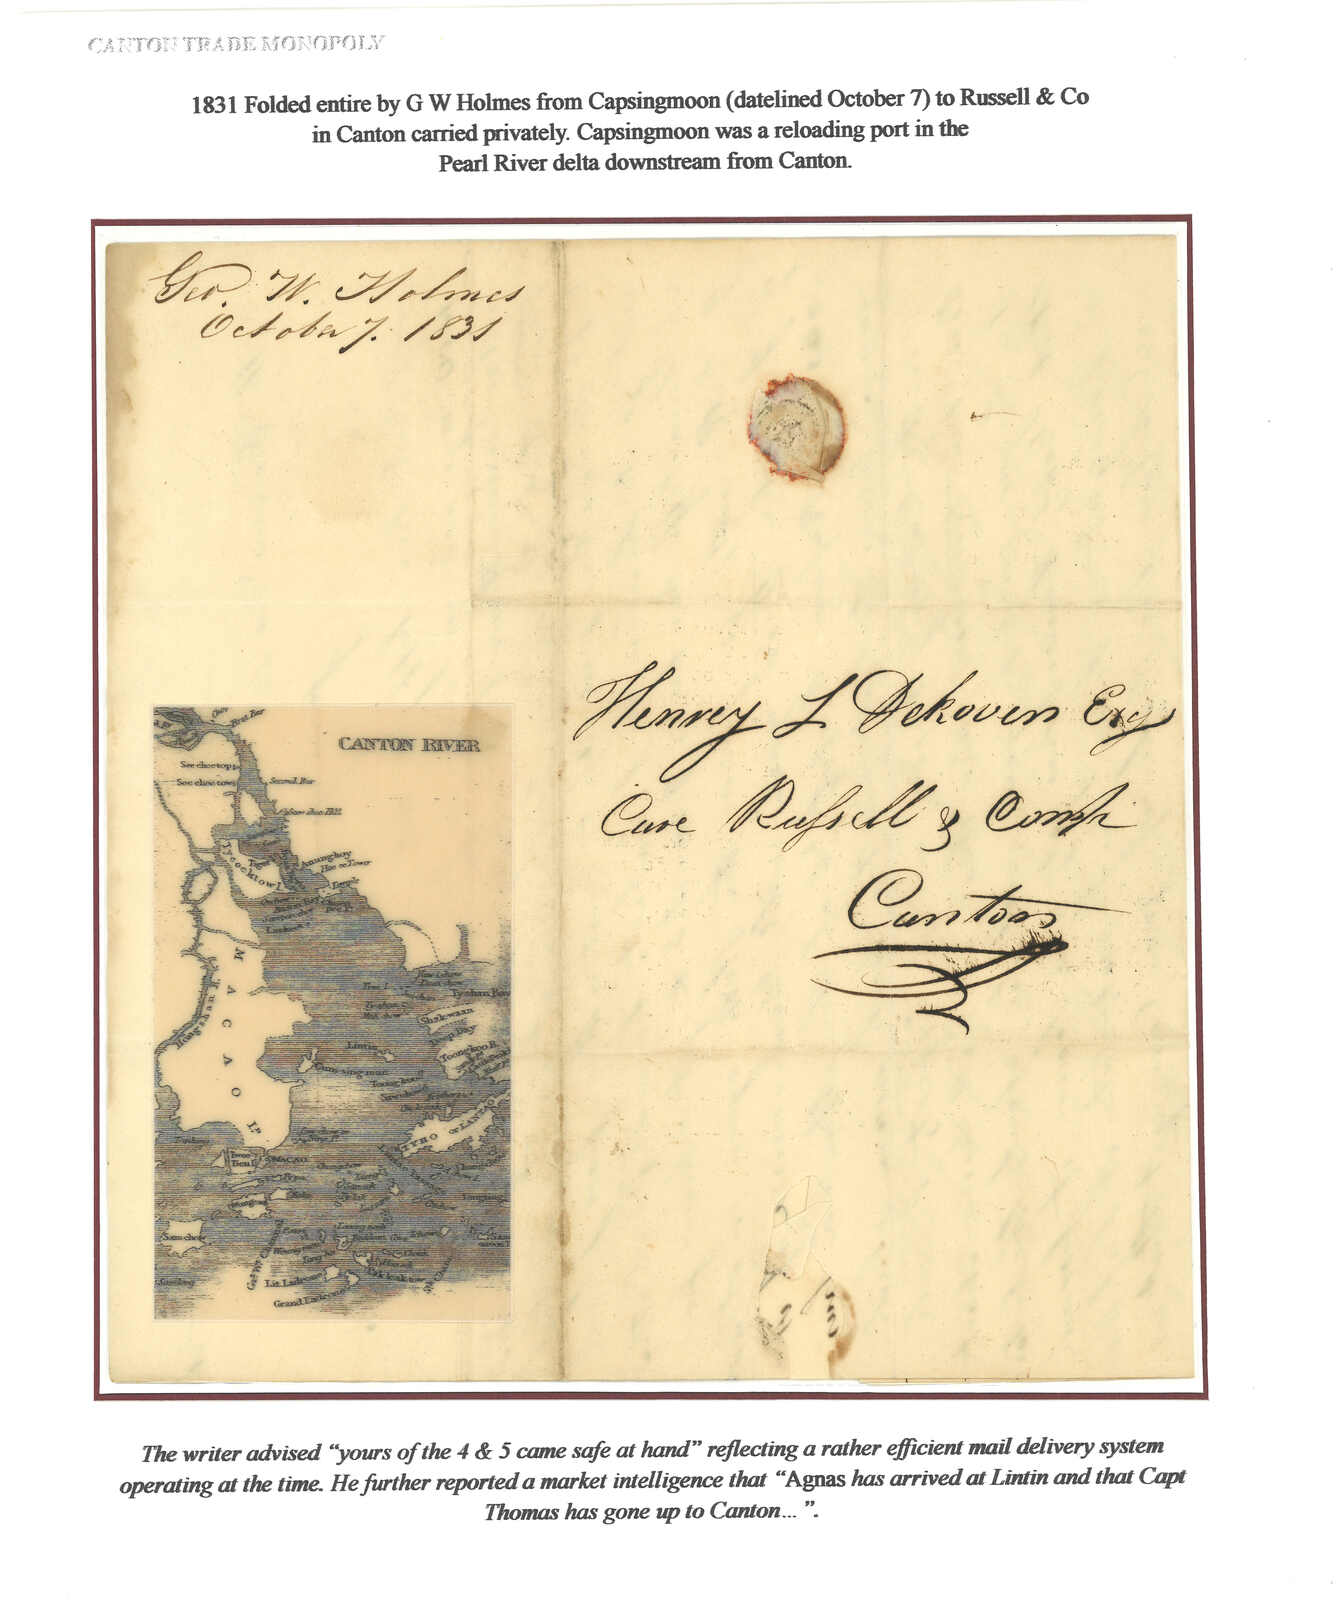 CANTON TRADE MONOPOLY
1831 Folded entire by G W Holmes from Capsingmoon (datelined October 7) to Russell & Co
in Canton carried privately. Capsingmoon was a reloading port in the
Pearl River delta downstream from Canton.
Geo. W. Holmes
October 7. 1831
Henrey L Dekoven Esq
Care Russell & Comp
Canton
CANTON RIVER
First Bar
See chee top
See chee tow
Second Bar
Tycocktow I.
Anunghoy
MACAO Id.
Hongshan R.
Lintin
Shakwaan
Deep Bay
Toonokoo B.
TYHO or LANTAO
MACAO
Samchow
Lit. Ladrone
Grand Ladrone
The writer advised “yours of the 4 & 5 came safe at hand” reflecting a rather efficient mail delivery system
operating at the time. He further reported a market intelligence that “Agnas has arrived at Lintin and that Capt
Thomas has gone up to Canton... ”.